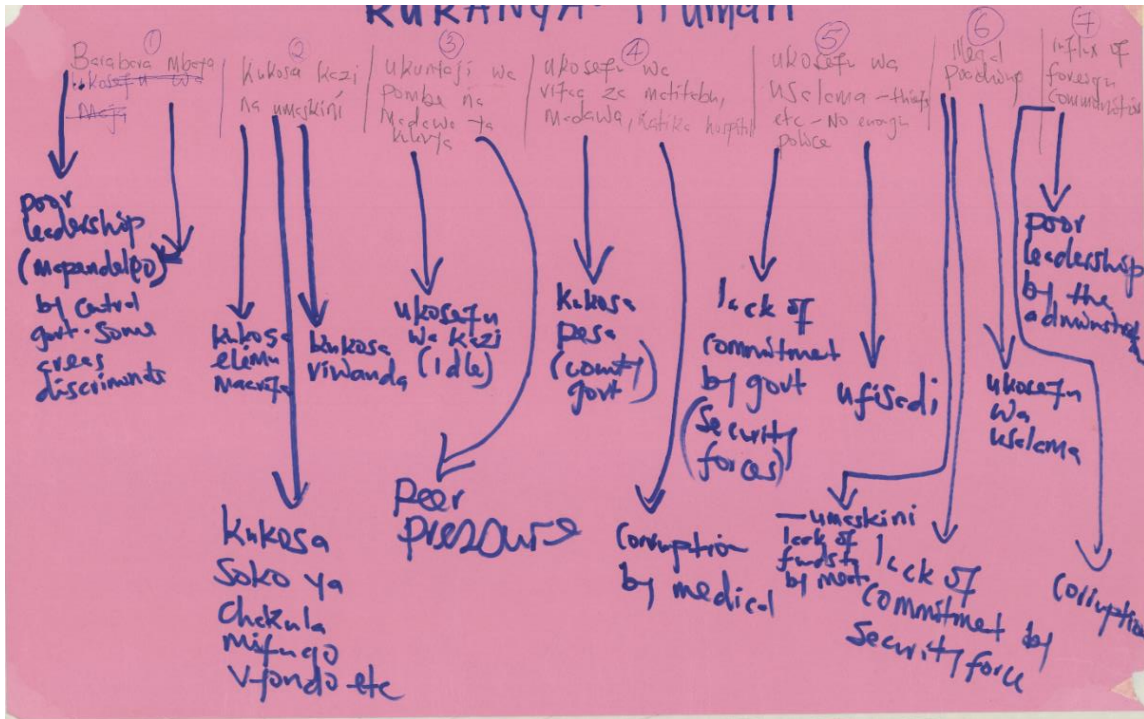 KURANYA - Human
①
Barabara Mbaya
ukosefu wa
Maji
②
Kukosa kazi
na umaskini
③
Ukuntaji wa
Pombe na
Madawa ya
Kulevya
④
Ukosefu wa
vifaa za matitabu,
Madawa, Katika hospital
⑤
Ukosefu wa
Uselama - thiefs
etc - No enough
police
⑥
Illegal
Poaching
⑦
influx of
foreign
communities
poor
leadership
(Mapendeleo)
by central
govt. some
areas
discriminate
kukosa
elimu
Maarifa
kukosa
viwanda
Kukosa
Soko ya
Chakula
Mifugo
Vyondo etc
ukosefu
wa kazi
(Idle)
Peer
Pressure
Kukosa
pesa
(County
govt)
Corruption
by medical
lack of
commitment
by govt
(Security
forces)
ufisadi
- umaskini
lack of
funds
by
lack of
commitment by
Security force
ukosefu
wa
uselama
poor
leadership
by the
administrat
Corruption